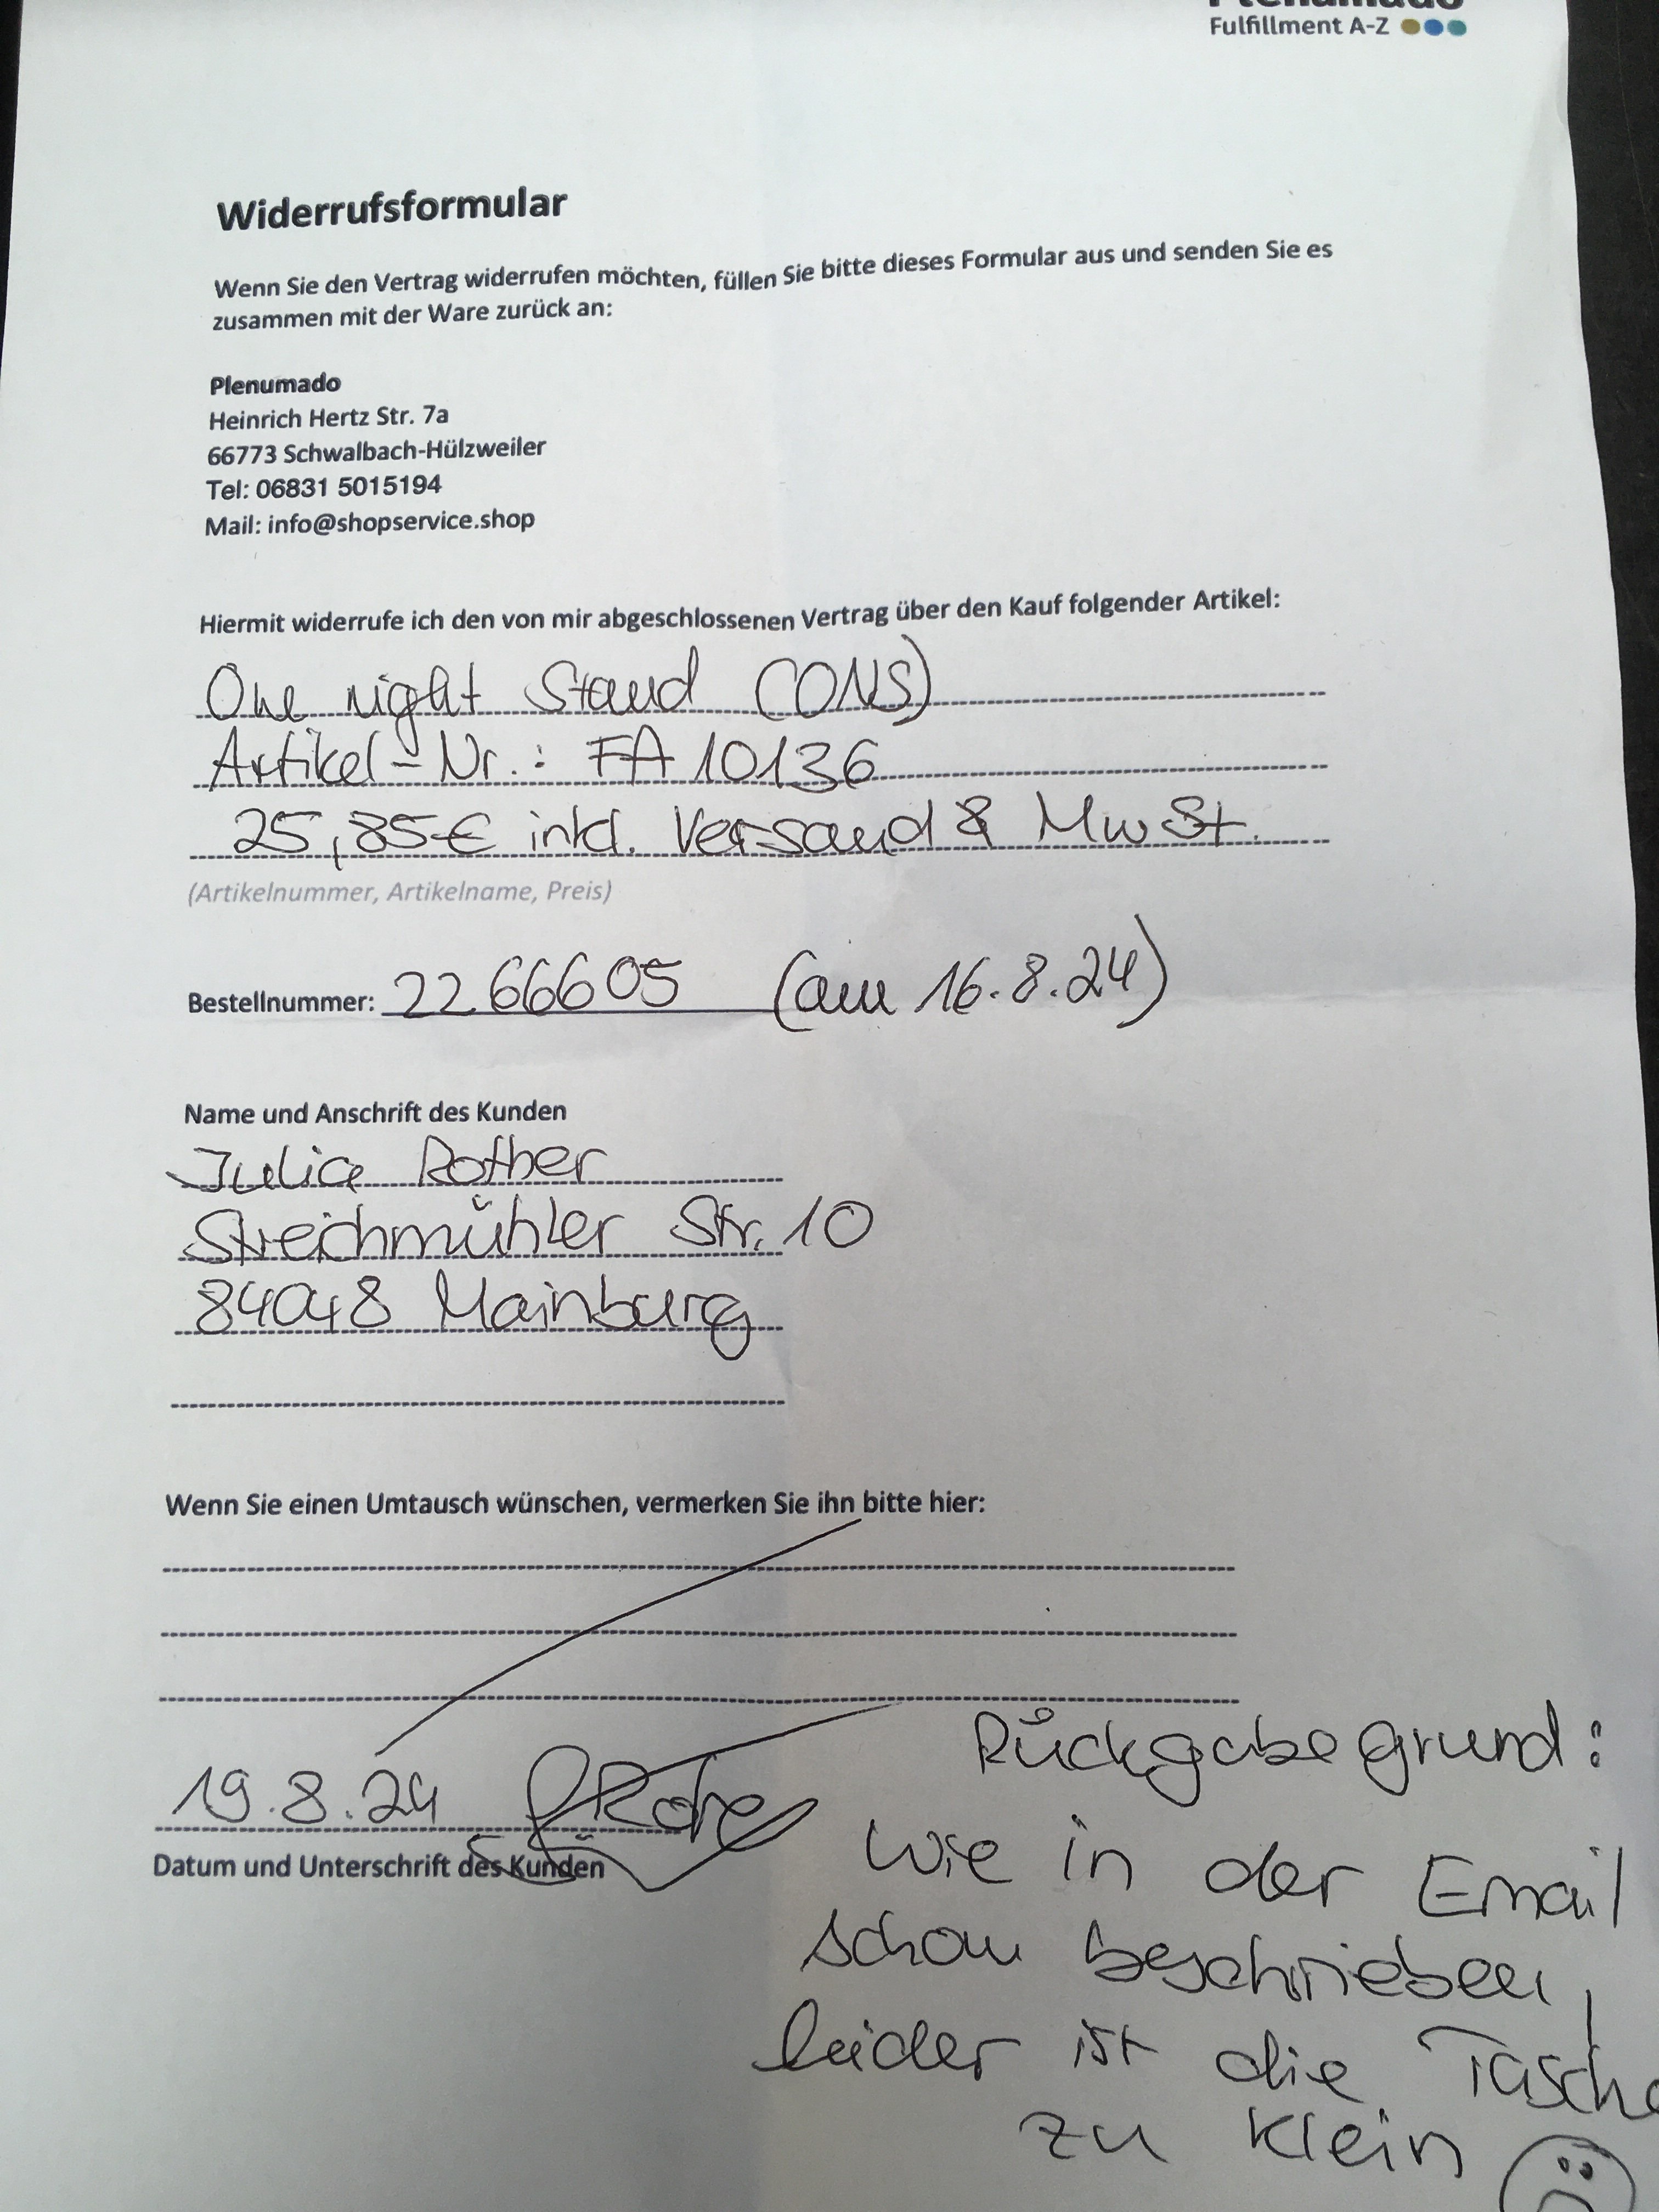 Plenumado
Fulfillment A-Z
Widerrufsformular
Wenn Sie den Vertrag widerrufen möchten, füllen Sie bitte dieses Formular aus und senden Sie es
zusammen mit der Ware zurück an:
Plenumado
Heinrich Hertz Str. 7a
66773 Schwalbach-Hülzweiler
Tel: 06831 5015194
Mail: info@shopservice.shop
Hiermit widerrufe ich den von mir abgeschlossenen Vertrag über den Kauf folgender Artikel:
One night Stand (ONS)
Artikel-Nr.: FA 10136
25,85€ inkl. Versand & MwSt.
(Artikelnummer, Artikelname, Preis)
Bestellnummer: 2266605 (am 16.8.24)
Name und Anschrift des Kunden
Julia Rother
Streichmühler Str. 10
84048 Mainburg
Wenn Sie einen Umtausch wünschen, vermerken Sie ihn bitte hier:
19.8.24 JRother
Datum und Unterschrift des Kunden
Rückgabegrund:
wie in der Email
schon beschrieben,
leider ist die Tasche
zu klein